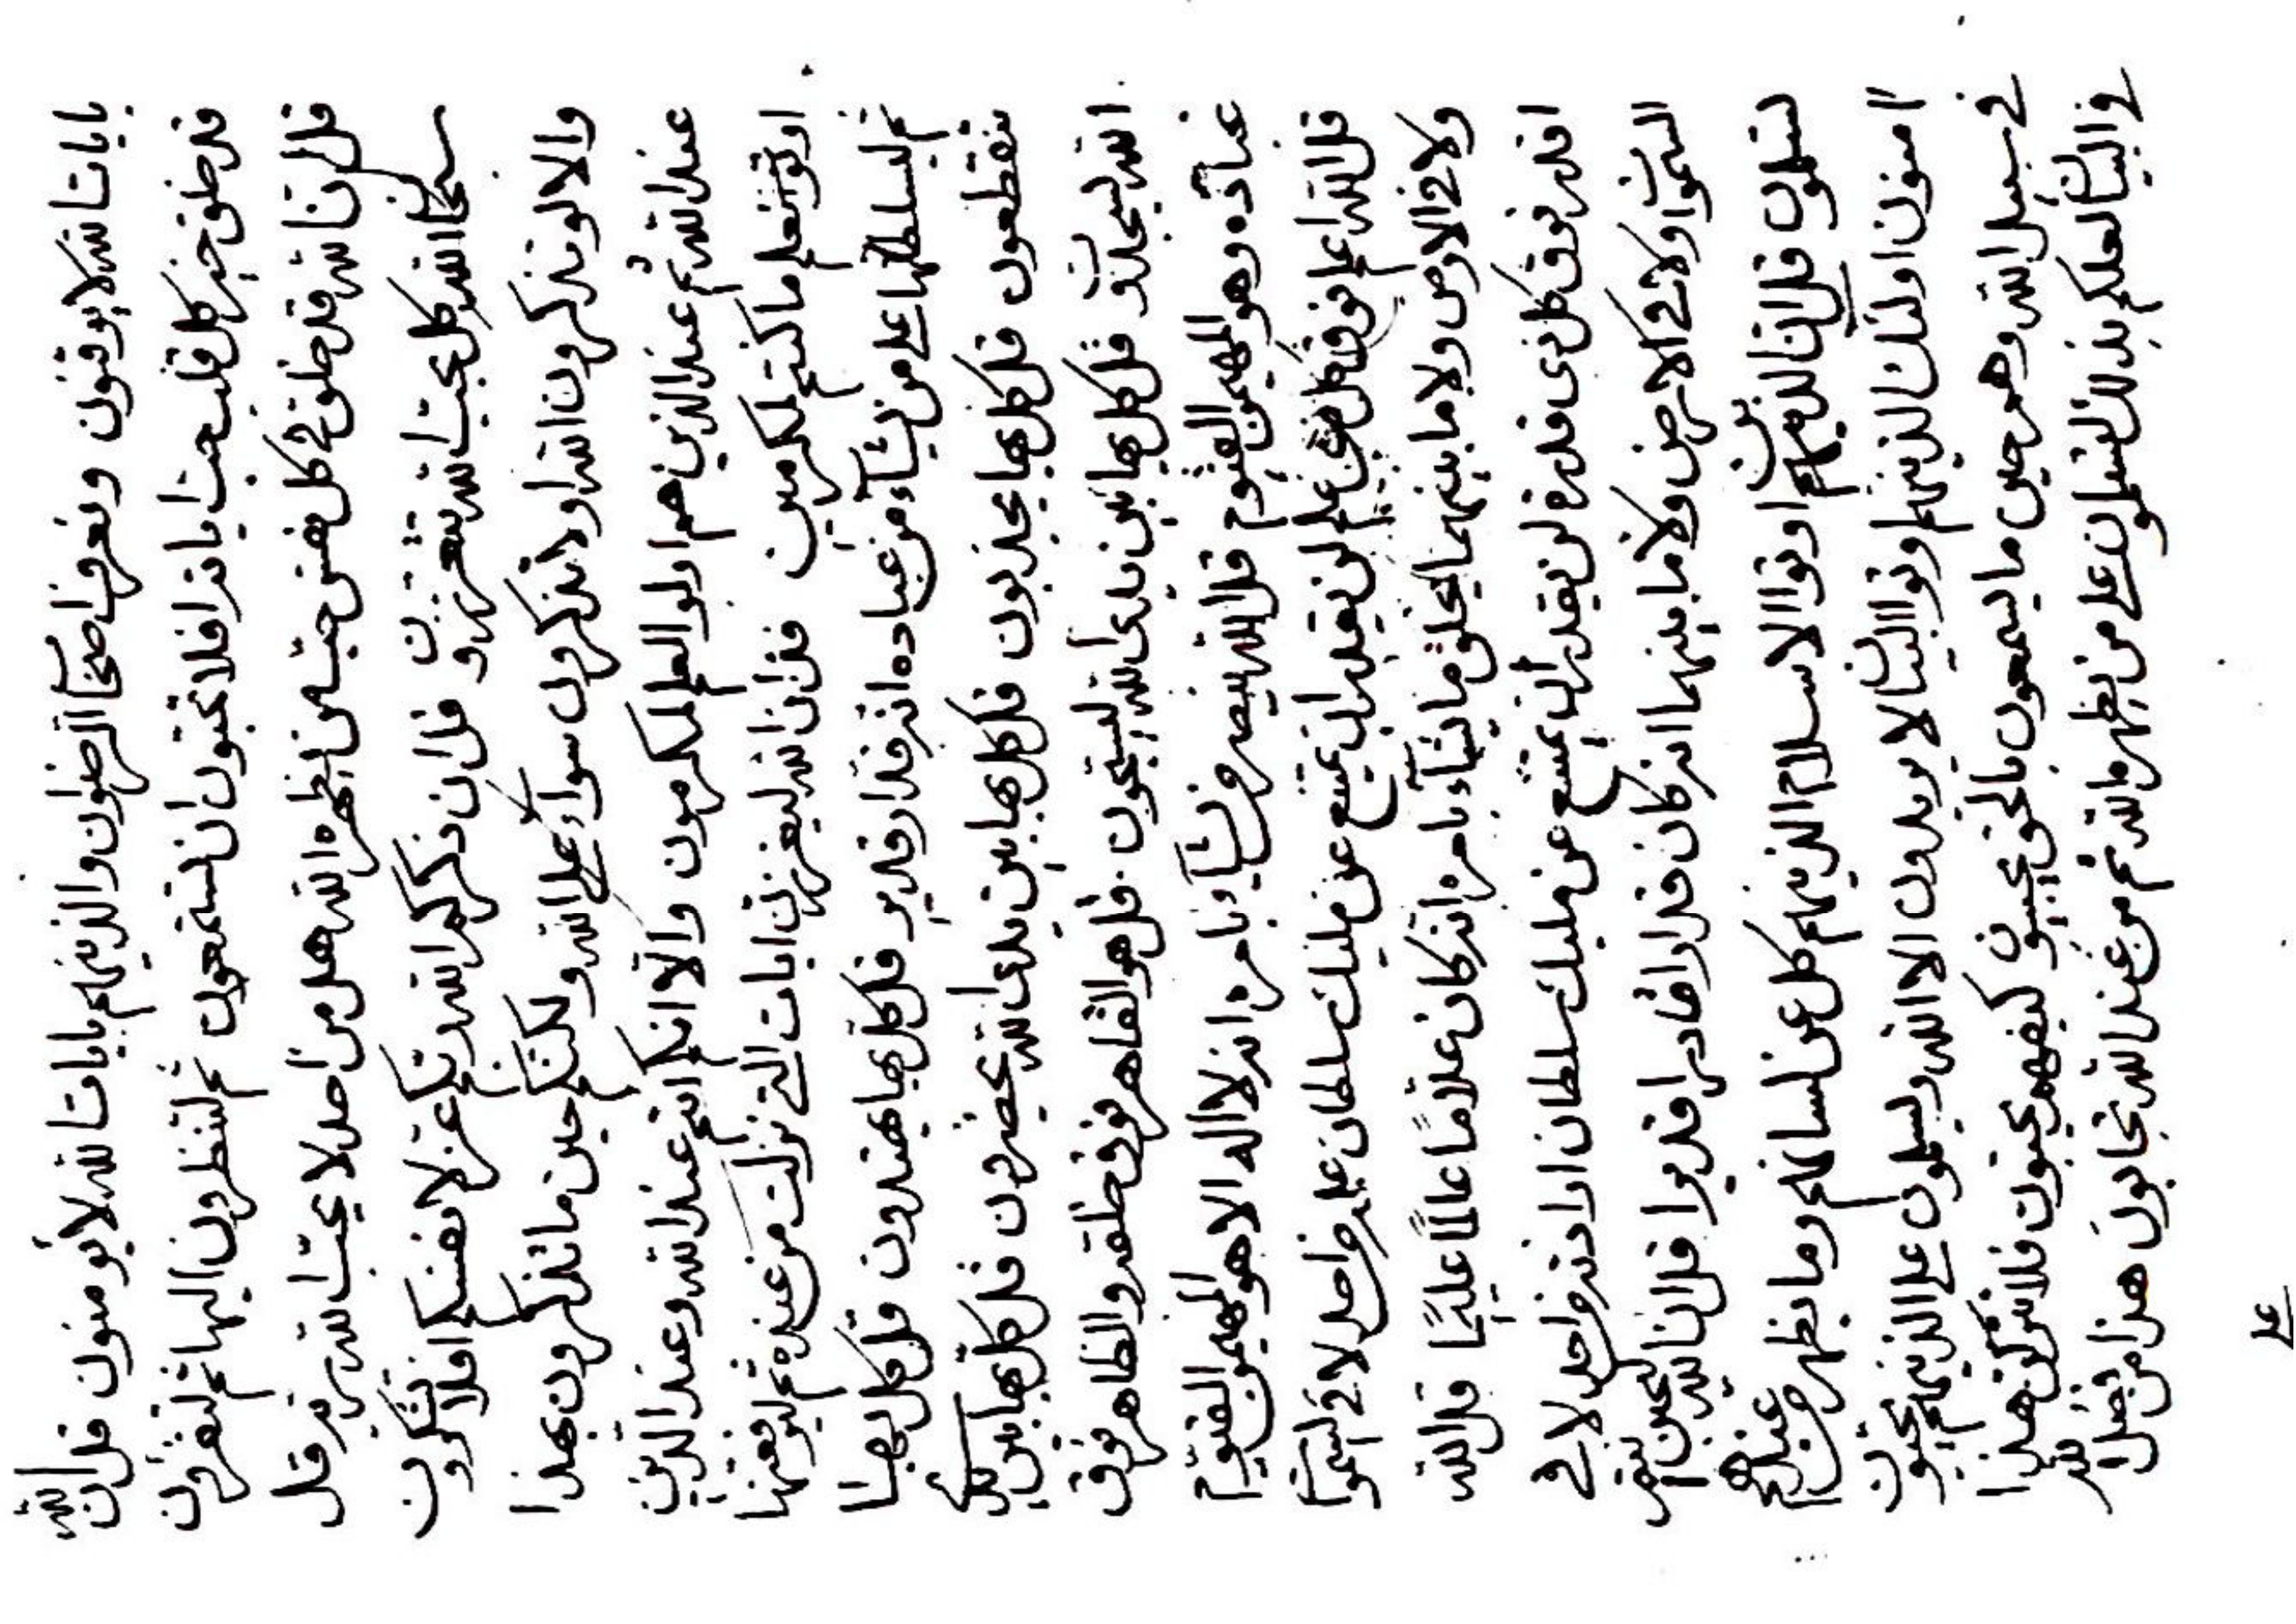 بايات الله لا يوقنون ونعرفها اصحاب الرضوان والذينهم بايات الله لا يؤمنون قل ان الله
قد خلق خير كل قلب حب اياته افلا تحبون ان تستمعون ثم لتنظرون اليها ثم لتقرؤن
قل ان الله قد خلق في كل نفس حب من يظهره الله هل من احد لا يحب الله ربه قل
سبحان الله كل بحب الله يتعززون قل ان ذكركم الله ربكم عز لانفسكم افلا تشكرون
والا لو تذكرون الله او لا تذكرون سواء على الله ولكنكم حين ما تذكرون بهذا
عند الله ثم عند الذين هم اولوا العلم لمكرمون والا انكم انتم عند الله وعند الذين
اوتوا العلم ما كنتم لمكرمين قل ان الله ليعززن ايات التي نزلت من عنده ثم ليرفعنها
ثم ليسلطنها على من يشاء من عباده انه قدار قدير قل كل بها يهتدون قل كل بها
ينقطعون قل كل بها يجذبون قل كل بها بين يدي الله يحضرون قل كل بها بين يدي
الله ليسجدون قل كل بها بين يدي الله ليسبحون قل هو القاهر فوق خلقه والظاهر فوق
عباده وهو المهيمن القيوم قل الله ينصر من يشاء بامره انه لا اله الا هو المهيمن القيوم
قل الله اعلم فوق كل ذي علم لن يقدر ان يمتنع عن مليك سلطان علمه من احد لا في السموات
ولا في الارض ولا ما بينهما يخلق ما يشاء بامره انه كان علاما عالما عليما قل الله
اقدر فوق كل ذي قدرة لن يقدر ان يمتنع عن مليك سلطان اراداته من احد لا في
السموات ولا في الارض ولا ما بينهما انه كان قدارا قادرا قديرا قل انا لنحبن
لتسلمون قل ان الذينهم اوتوا الاسلام الذينهم كل عن لسانهم وما يظهر من عندهم
امنون اولئك الذينهم اوتوا البيان لا يريدون الا الله ويسلمون على الذينهم يحبون
في سبيل الله وهم حين ما يسمعون بالحق يجيبون كيف هم يحبون فلا تتركن هذا
في البيان لعلكم بذلك لتسلمون على من يظهره الله ثم من عند الله تجابون هذا من فضل الله
على